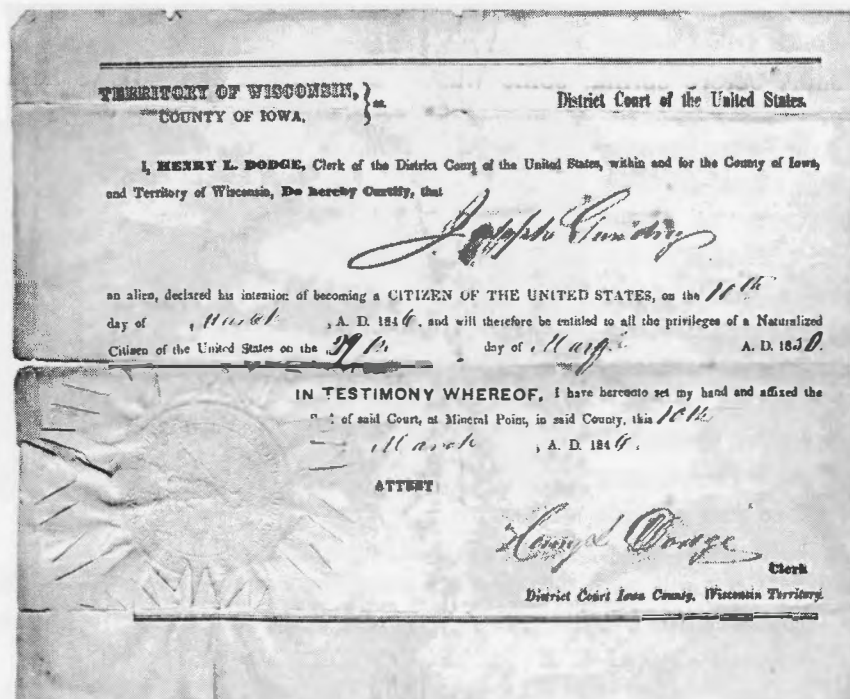 TERRITORY OF WISCONSIN, } ss.
COUNTY OF IOWA,
District Court of the United States.
I, HENRY L. DODGE, Clerk of the District Court of the United States, within and for the County of Iowa,
and Territory of Wisconsin, Do hereby Certify, that
Joseph Gundry
an alien, declared his intention of becoming a CITIZEN OF THE UNITED STATES, on the 10th
day of , March , A. D. 1846, and will therefore be entitled to all the privileges of a Naturalized
Citizen of the United States on the 29th day of A. D. 1850.
IN TESTIMONY WHEREOF, I have hereunto set my hand and affixed the
of said Court, at Mineral Point, in said County, this 10th
March , A. D. 1846.
ATTEST
Henry L Dodge
Clerk
District Court Iowa County, Wisconsin Territory.